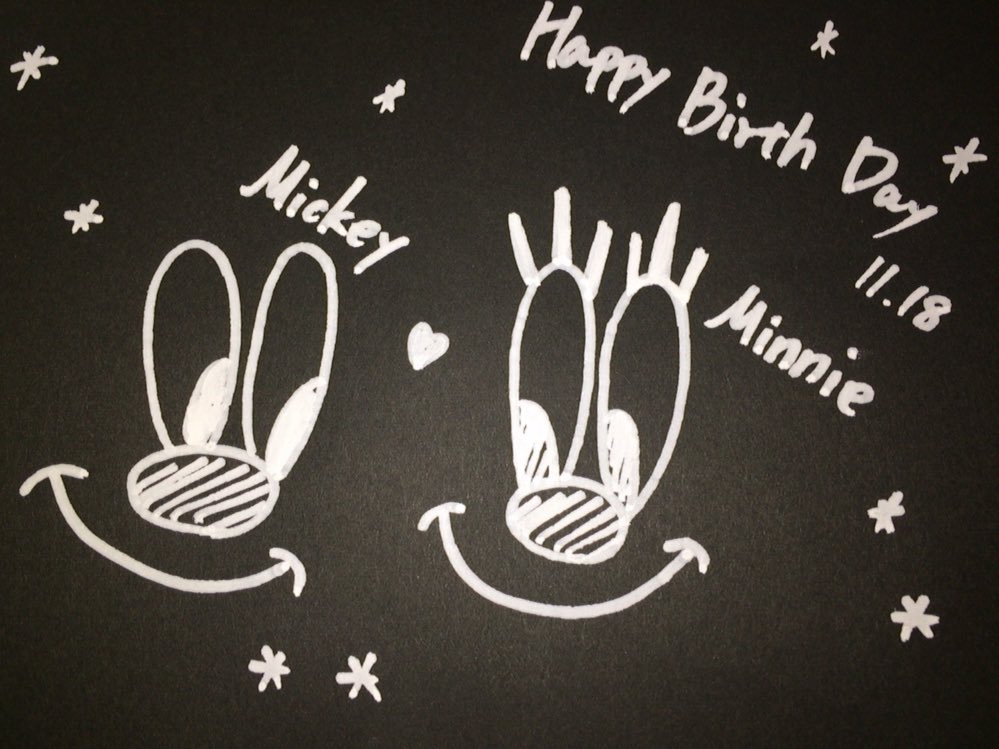 Happy Birth Day
11.18
Mickey
Minnie